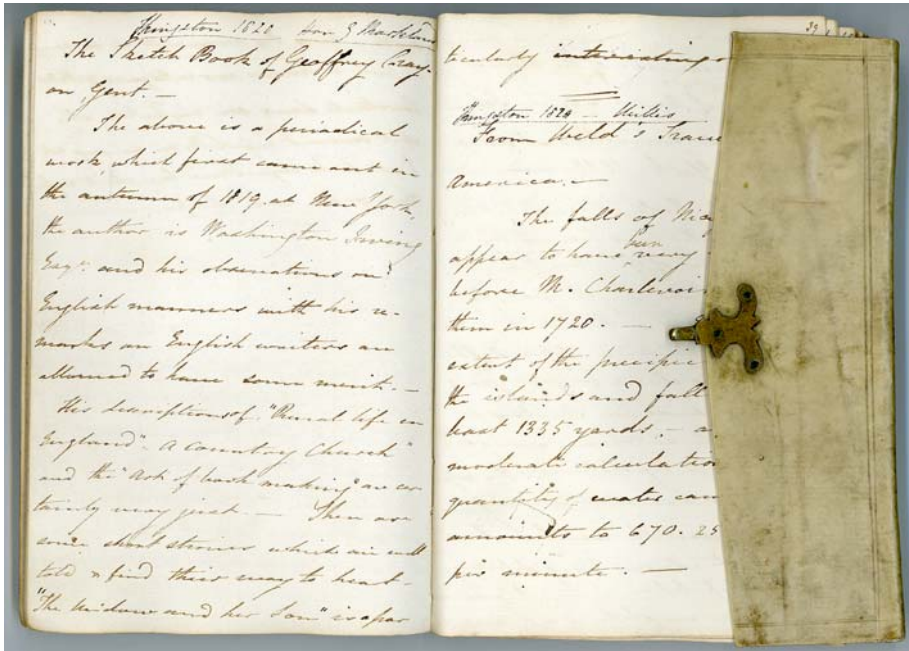 Kingston 1820 Hon G Markland
The Sketch Book of Geoffrey Cray-
on, Gent. —
The above is a periodical
work, which first came out in
the autumn of 1819. at New York,
the author is Washington Irving
Esqr. and his observations on
English manners with his re-
marks on English writers are
allowed to have some merit. —
His descriptions of "Rural life in
England" - A country Church"
and the "Art of book making" are cer-
tainly very just — There are
some short stories which are well
told & find their way to heart -
"The Widow and her Son" is a par
39
ticularly interesting
Kingston 1820 —
From Weld's Trav
America. —
The falls of Nia
appear to have very
been
before M. Charlevoix
them in 1720. —
extent of the precipic
the islands and fall
least 1335 yards, - a
moderate calculatio
quantity of water
amounts to 670. 25
per minute. —